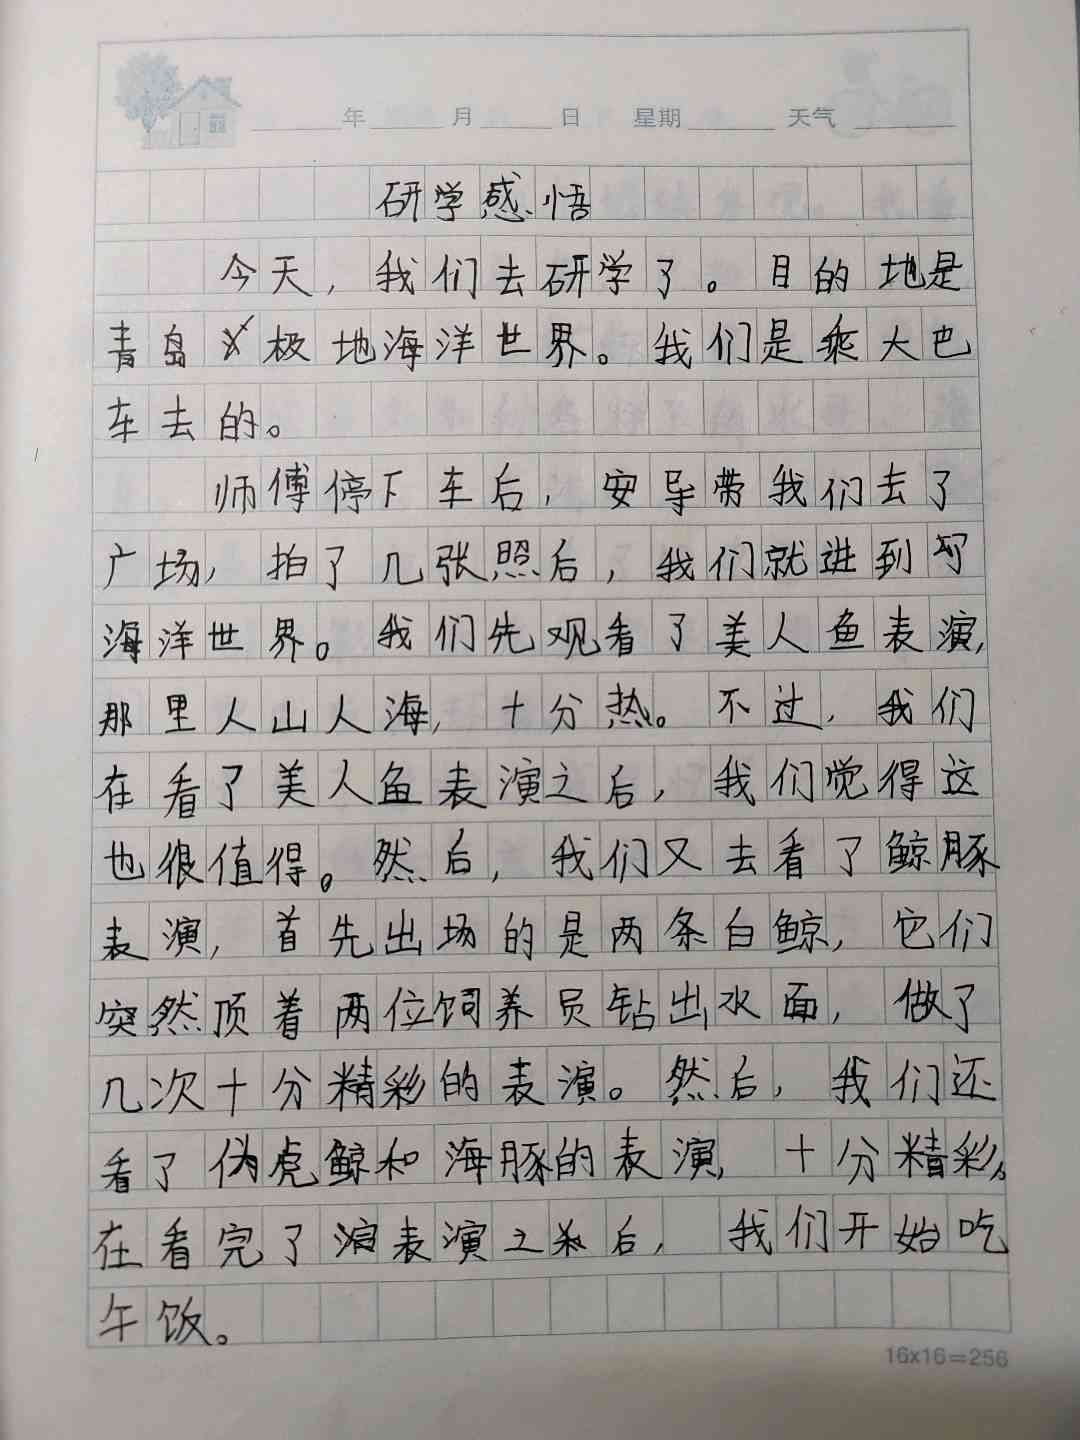 年 月 日 星期 天气
研学感悟
今天，我们去研学了。目的地是
青岛极地海洋世界。我们是乘大巴
车去的。
师傅停下车后，安导带我们去了
广场，拍了几张照后，我们就进到
海洋世界。我们先观看了美人鱼表演，
那里人山人海，十分热。不过，我们
在看了美人鱼表演之后，我们觉得这
也很值得。然后，我们又去看了鲸豚
表演，首先出场的是两条白鲸，它们
突然顶着两位饲养员钻出水面，做了
几次十分精彩的表演。然后，我们还
看了伪虎鲸和海豚的表演，十分精彩。
在看完了演表演之后，我们开始吃
午饭。
16x16=256